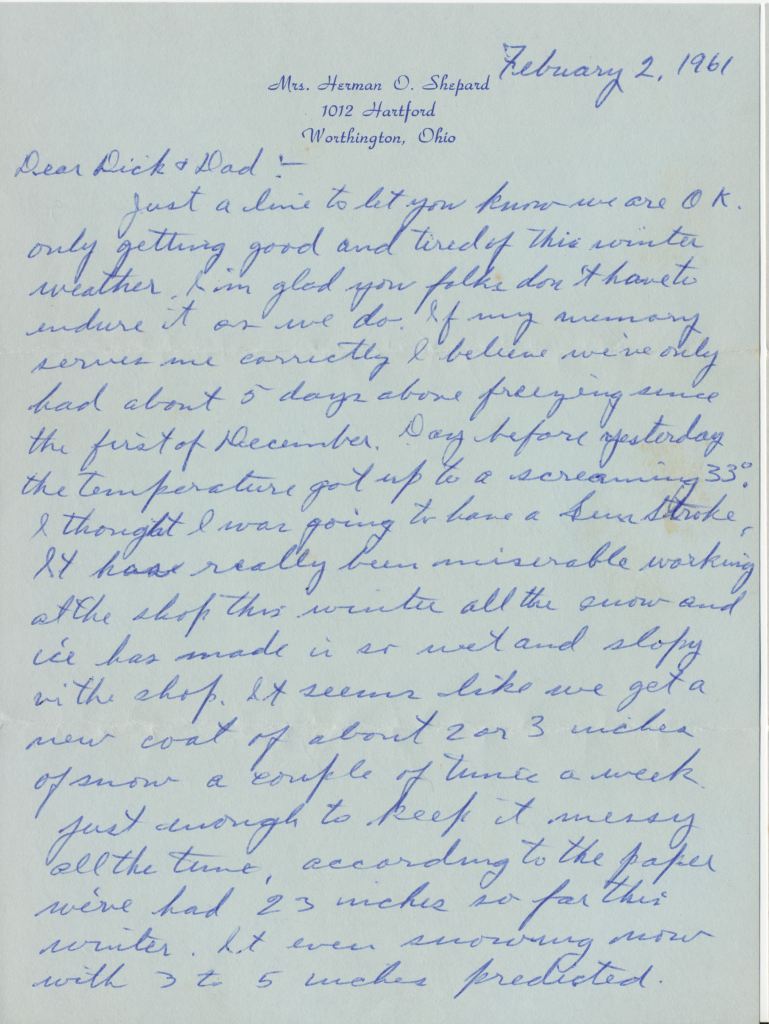 Mrs. Herman O. Shepard
1012 Hartford
Worthington, Ohio
Febuary 2, 1961
Dear Dick & Dad :-
Just a line to let you know we are O K.
only getting good and tired of this winter
weather. I'm glad you folks don't have to
endure it as we do. If my memory
serves me correctly I believe we've only
had about 5 days above freezing since
the first of December. Day before yesterday
the temperature got up to a screaming 33°.
I thought I was going to have a Sun Stroke,
It has really been miserable working
at the shop this winter all the snow and
ice has made it so wet and slopy
in the shop. It seems like we get a
new coat of about 2 or 3 inches
of snow a couple of times a week.
just enough to keep it messy
all the time, according to the paper
we've had 23 inches so far this
winter. It even snowing now
with 3 to 5 inches predicted.